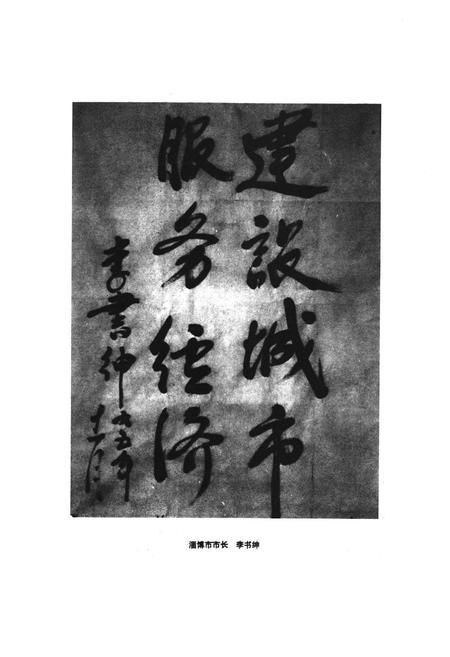 建設城市
服务經济
李書紳
九五年
十一月
淄博市市长 李书绅